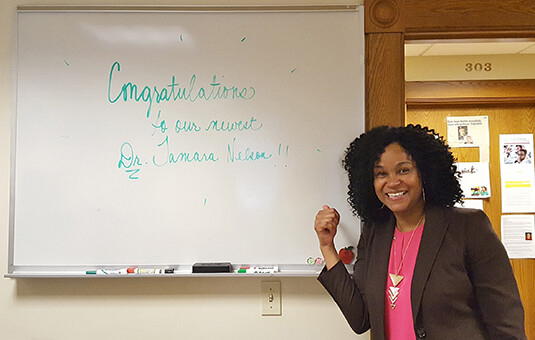 Congratulations
to our newest
Dr. Tamara Nelson!!
303